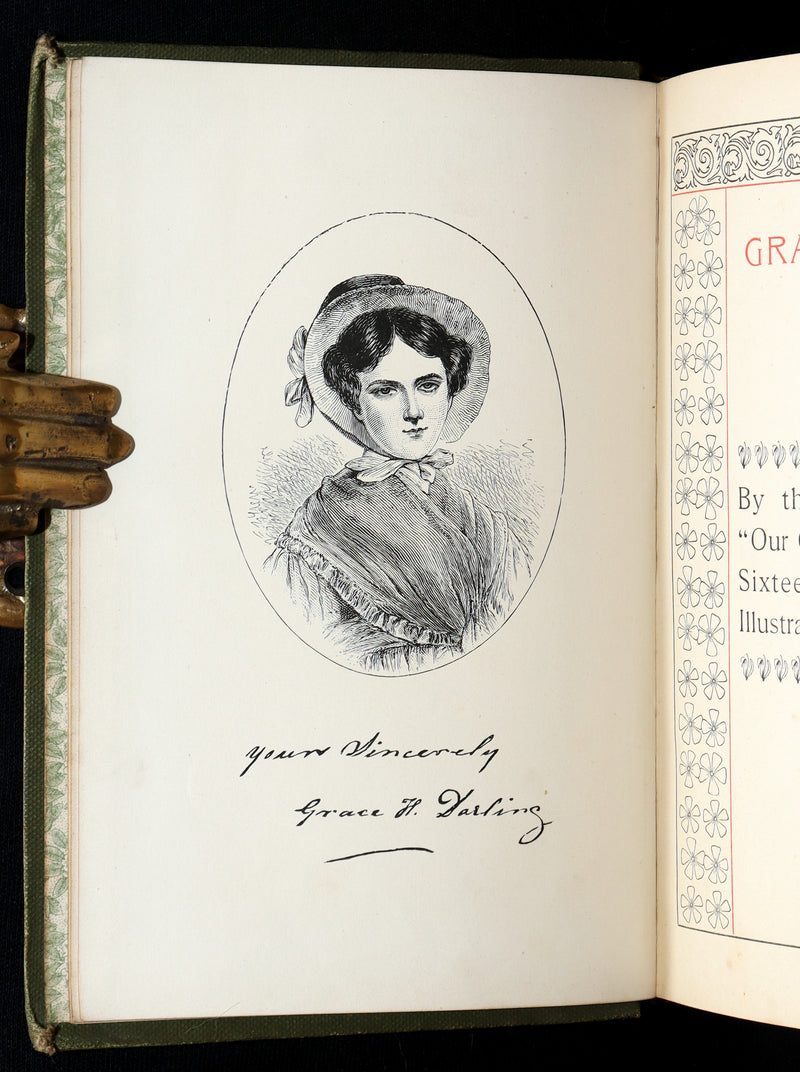 Yours Sincerely
Grace H. Darling
GRA
By th
"Our
Sixtee
Illustra